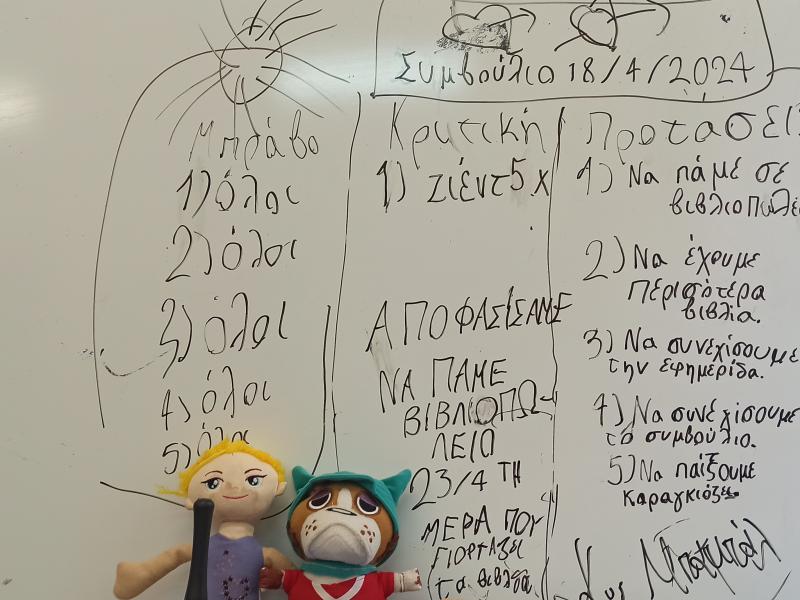 Συμβούλιο 18/4/2024
Μπράβο
1) όλοι
2) όλοι
3) όλοι
4) όλοι
5) όλοι
Κριτική
1) ζιέντ 5 χ
ΑΠΟΦΑΣΙΣΑΜΕ
ΝΑ ΠΑΜΕ
ΒΙΒΛΙΟΠΩ
ΛΕΙΟ
23/4 ΤΗ
ΜΕΡΑ ΠΟΥ
ΓΙΟΡΤΑΖΕΙ
τα βιβλία.
Προτάσεις
1) Να πάμε σε
βιβλιοπωλεί
2) Να έχουμε
Περισότερα
βιβλία.
3) Να συνεχίσουμε
την εφημερίδα.
4) Να συνεχίσουμε
το συμβούλιο.
5) Να παίξουμε
καραγκιόζει.